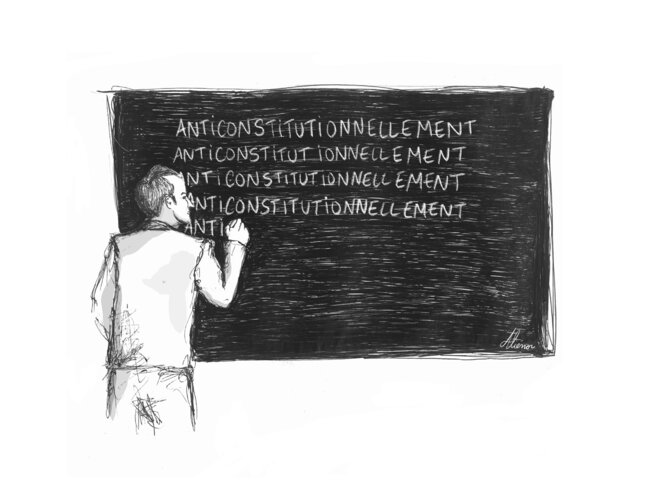 ANTICONSTITUTIONNELLEMENT
ANTICONSTITUTIONNELLEMENT
ANTICONSTITUTIONNELLEMENT
ANTICONSTITUTIONNELLEMENT
ANTI